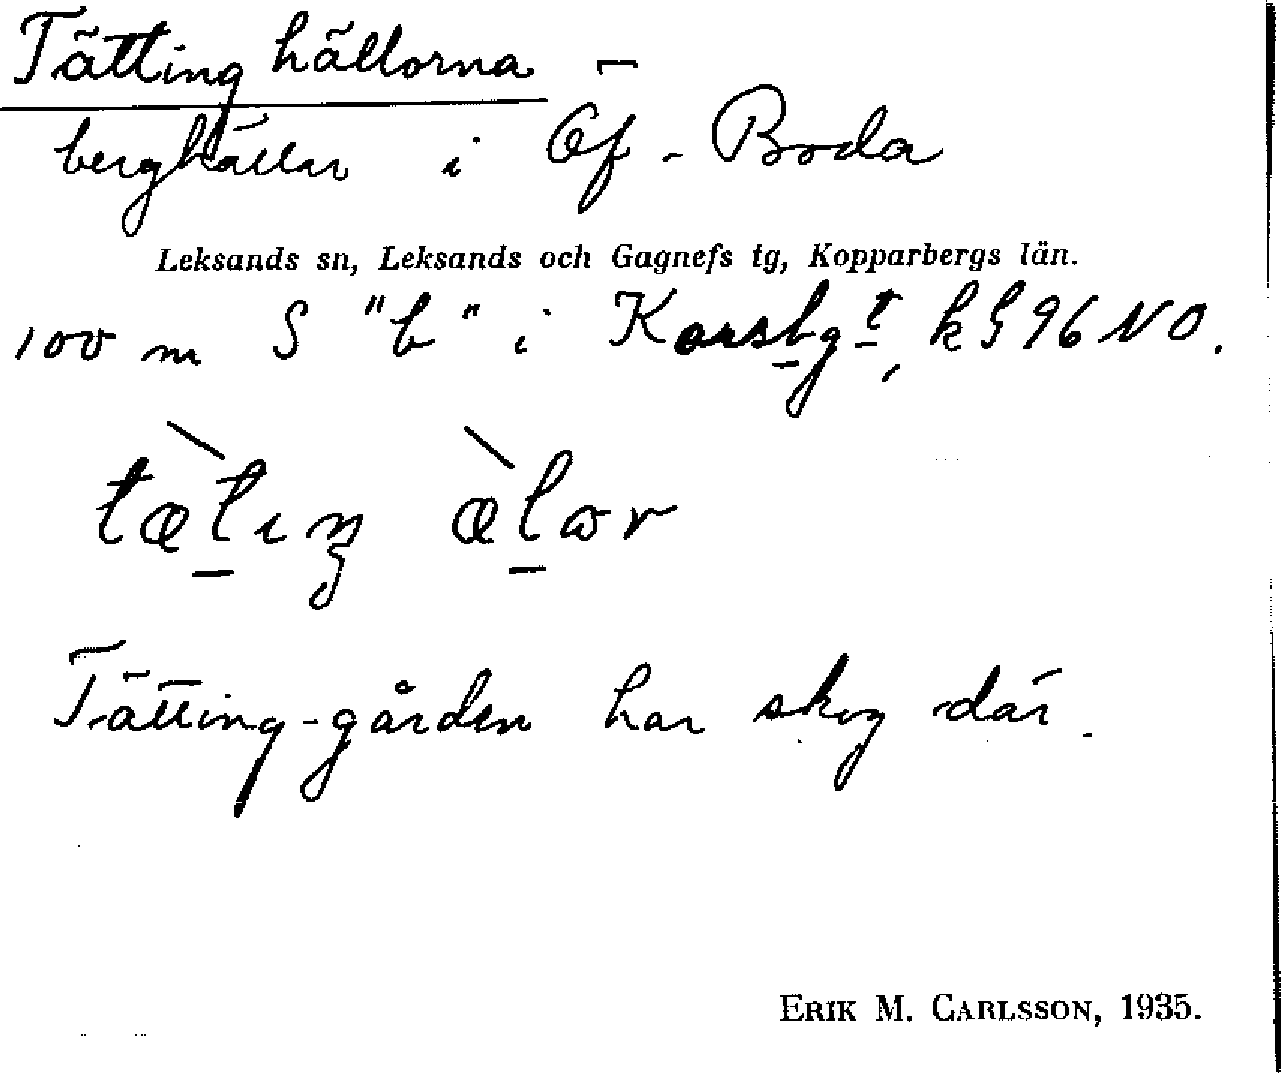 Tättinghällorna –
berghällar i Öf. Boda
Leksands sn, Leksands och Gagnefs tg, Kopparbergs län.
100 m S "b" i Korsbgt, k 96 NO.
tæ̀tıŋ æ̀lɷr
Tätting-gården har skog där.
ERIK M. CARLSSON, 1935.